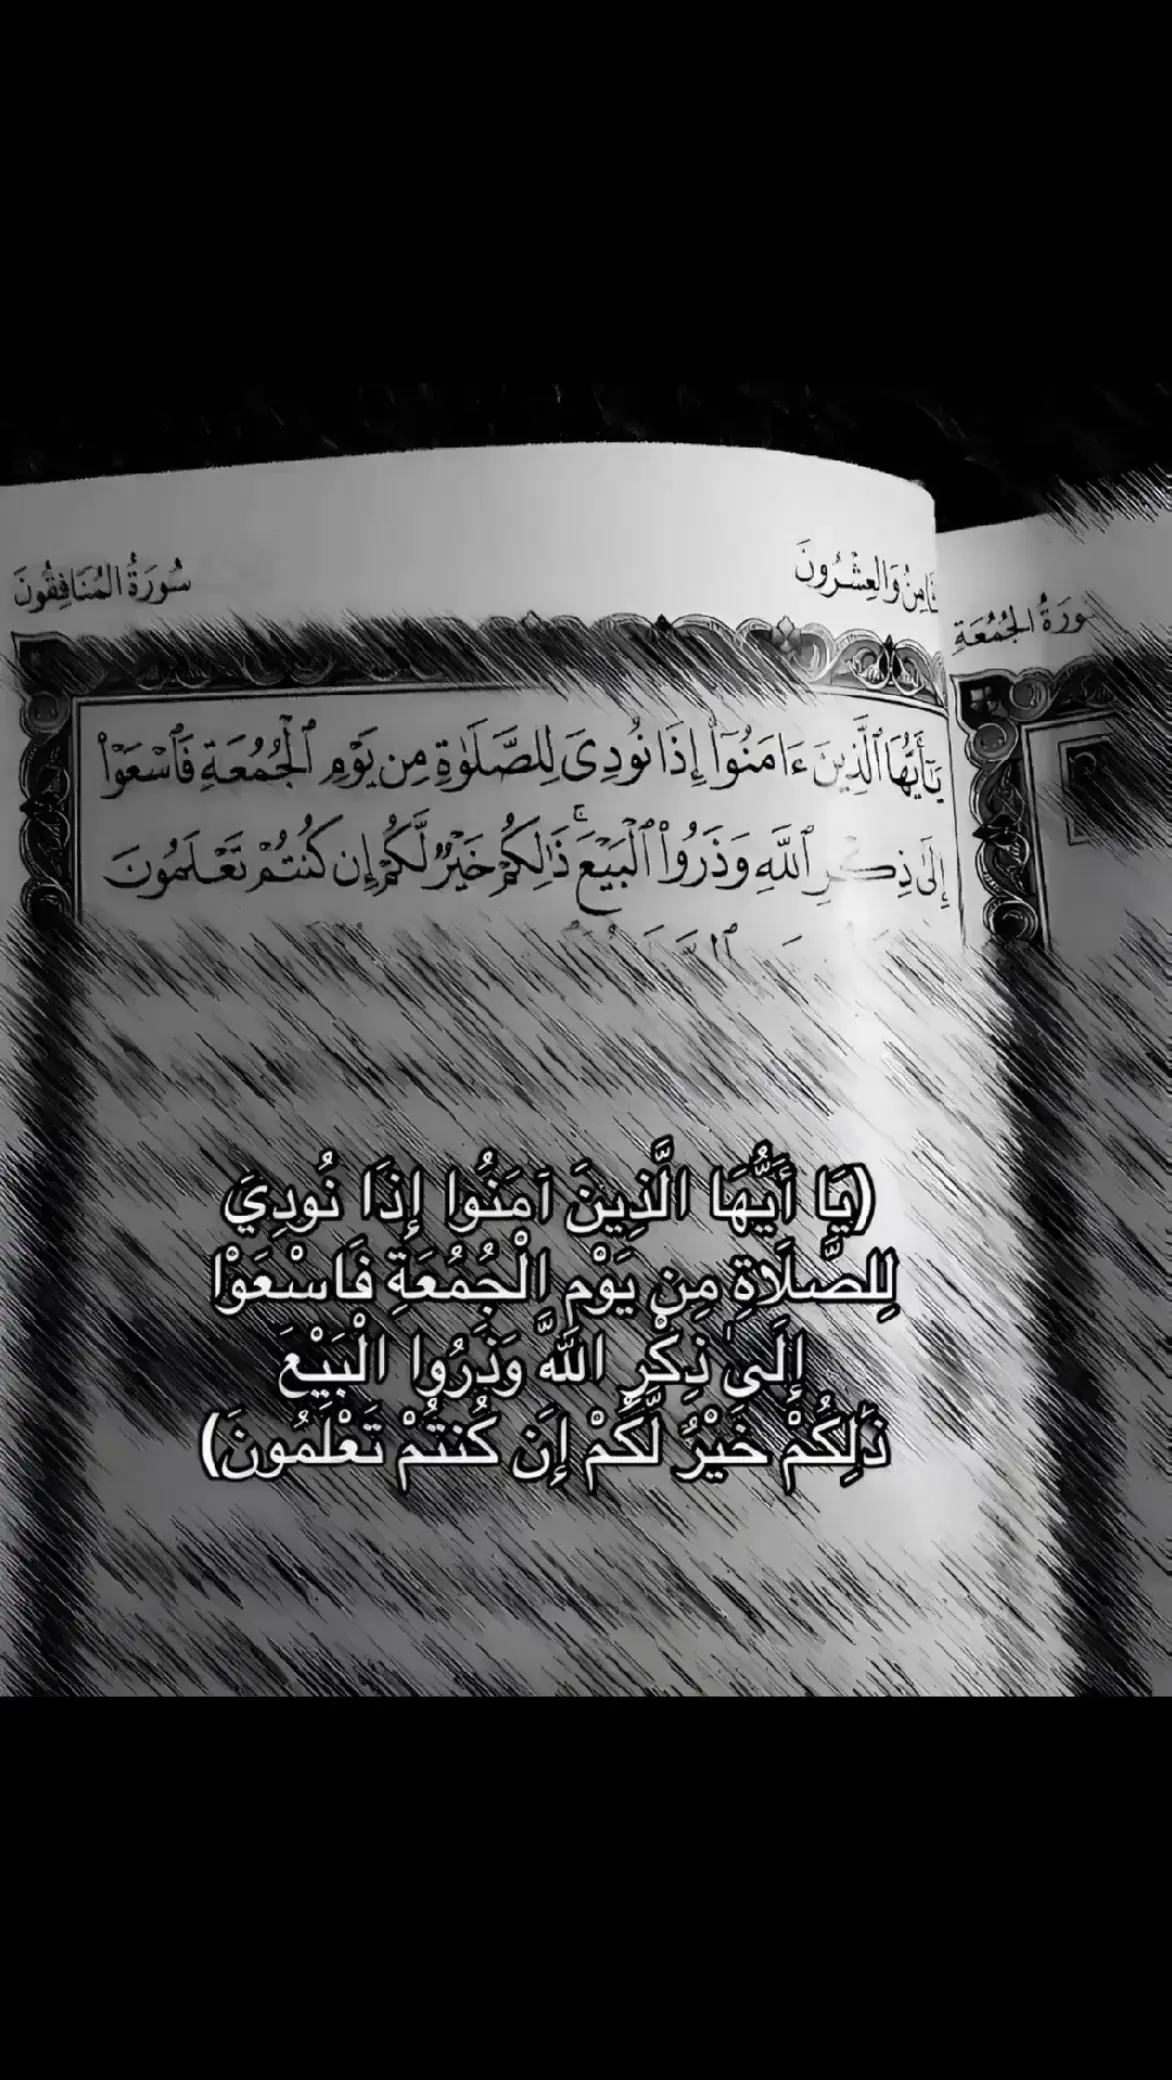 سُورَةُ الجُمُعَةِ
وَالعِشْرُونَ
سُورَةُ المُنَافِقُونَ
يَٰٓأَيُّهَا ٱلَّذِينَ ءَامَنُوٓا۟ إِذَا نُودِىَ لِلصَّلَوٰةِ مِن يَوْمِ ٱلْجُمُعَةِ فَٱسْعَوْا۟
إِلَىٰ ذِكْرِ ٱللَّهِ وَذَرُوا۟ ٱلْبَيْعَ ۚ ذَٰلِكُمْ خَيْرٌ لَّكُمْ إِن كُنتُمْ تَعْلَمُونَ
(يَا أَيُّهَا الَّذِينَ آمَنُوا إِذَا نُودِيَ
لِلصَّلَاةِ مِن يَوْمِ الْجُمُعَةِ فَاسْعَوْا
إِلَىٰ ذِكْرِ اللَّهِ وَذَرُوا الْبَيْعَ
ذَٰلِكُمْ خَيْرٌ لَّكُمْ إِن كُنتُمْ تَعْلَمُونَ)